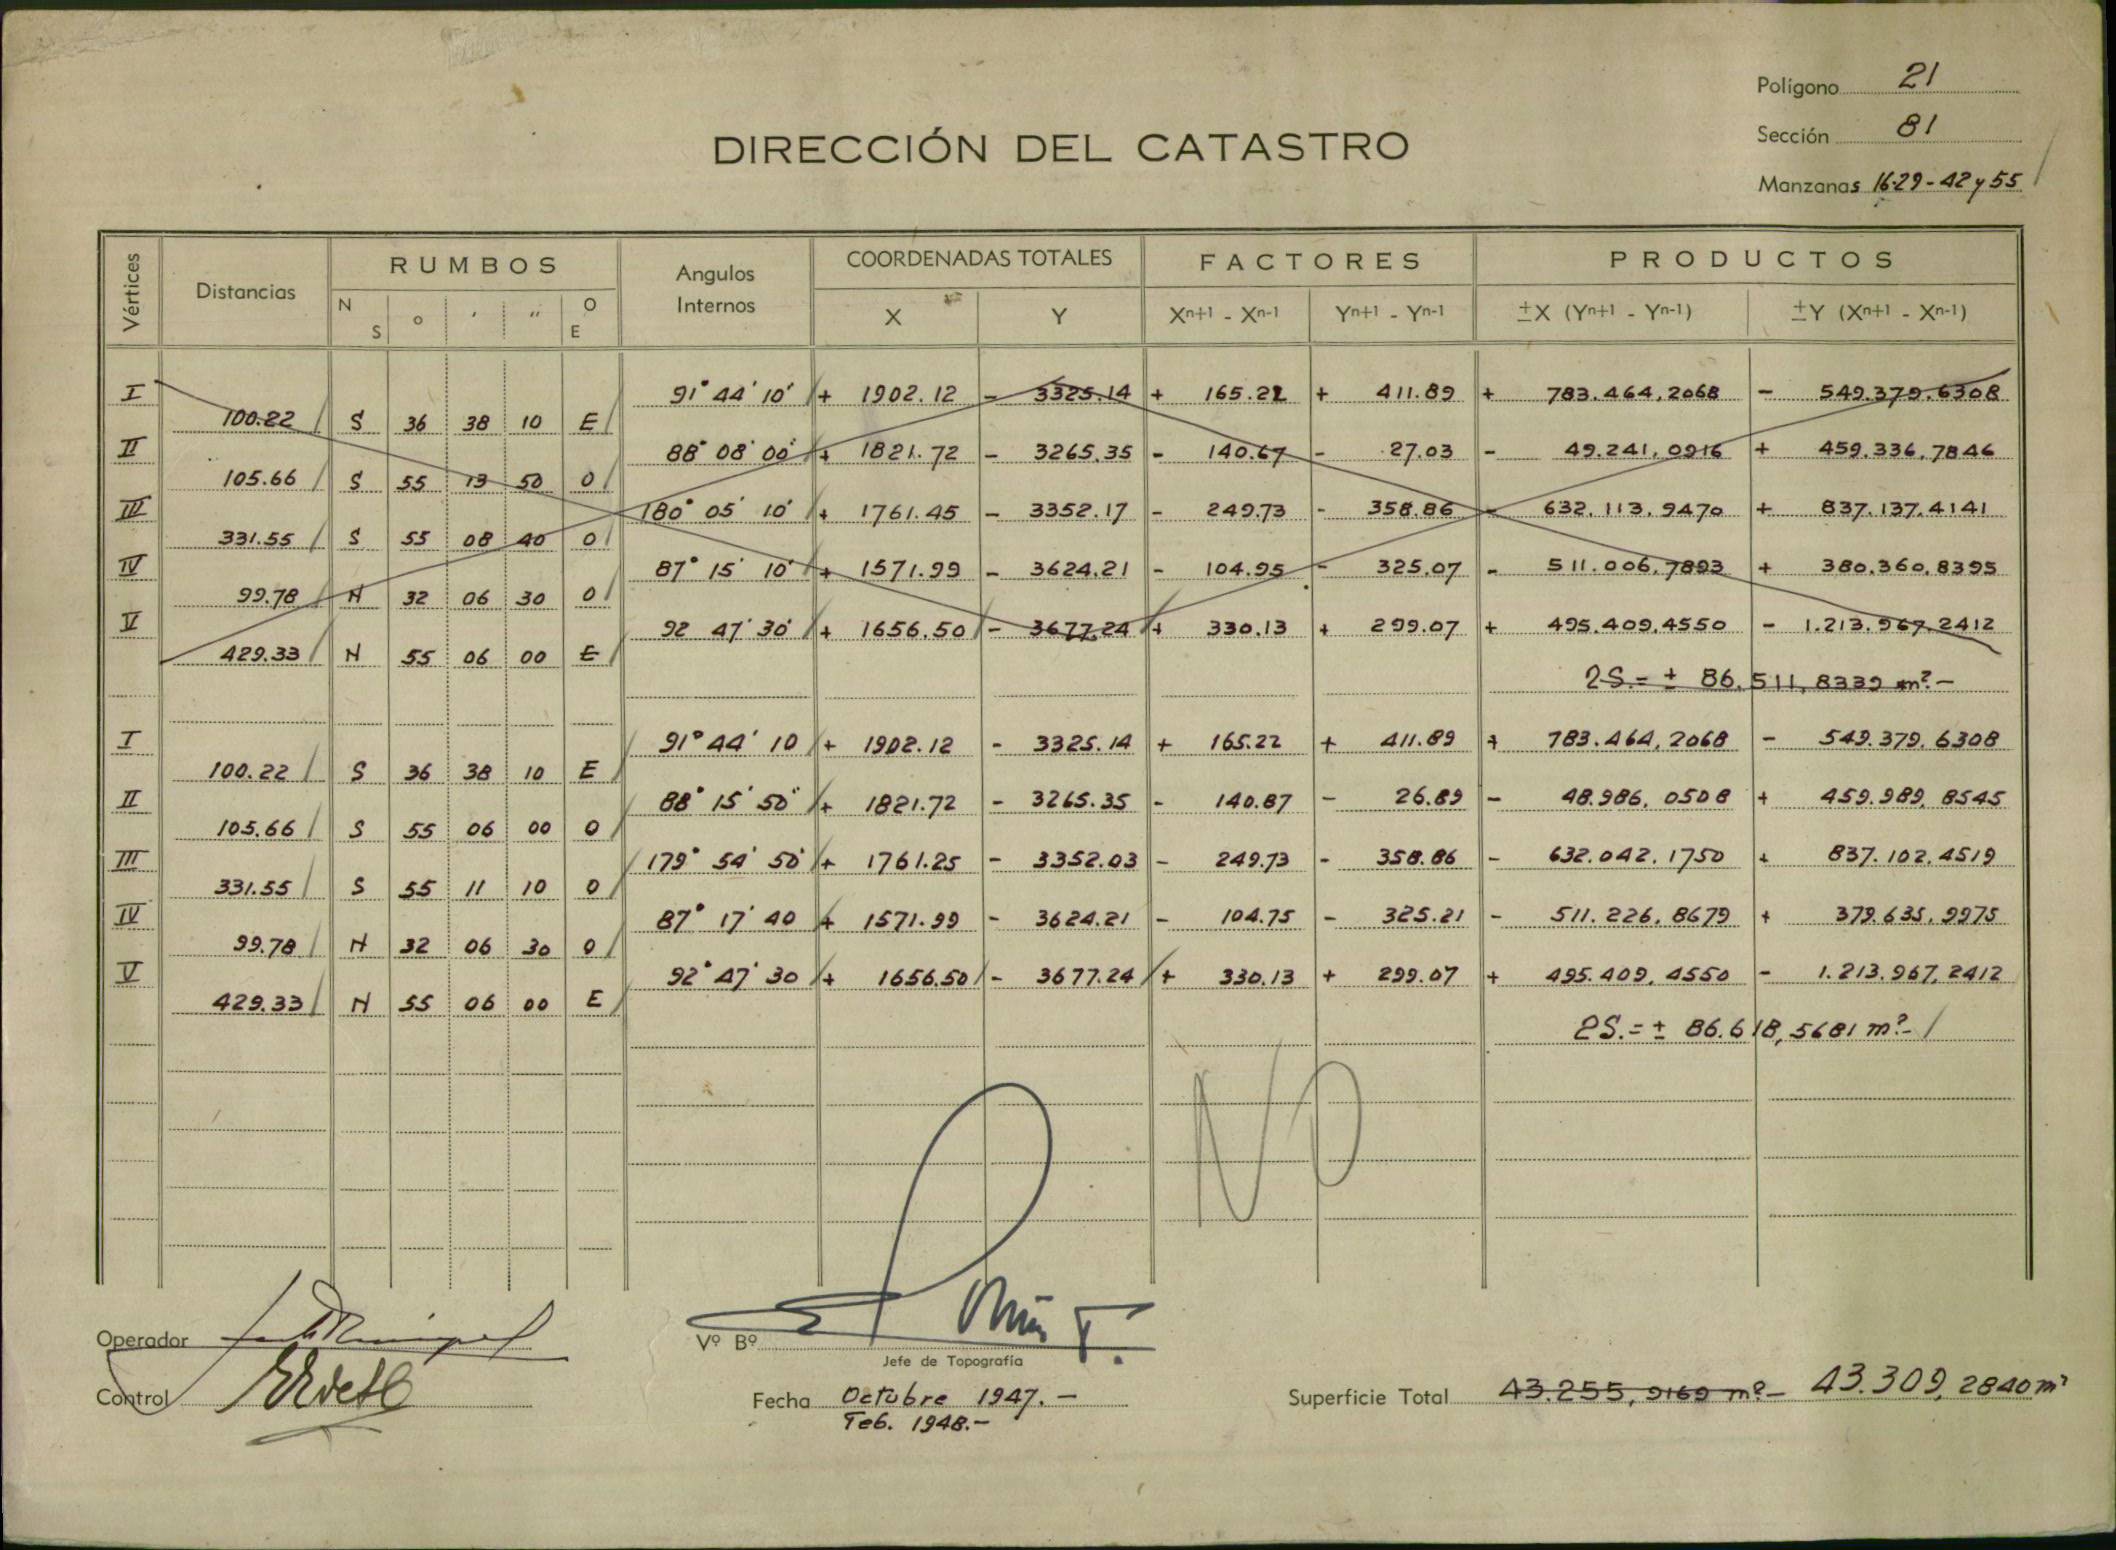 Polígono 21
Sección 81
Manzanas 16-29-42 y 55
DIRECCIÓN DEL CATASTRO
Vértices Distancias RUMBOS Angulos Internos COORDENADAS TOTALES FACTORES PRODUCTOS
N S ° ' " O E X Y Xn+1 - Xn-1 Yn+1 - Yn-1 ±X (Yn+1 - Yn-1) ±Y (Xn+1 - Xn-1)
I 91° 44' 10' + 1902.12 - 3325.14 + 165.22 + 411.89 + 783.464,2068 - 549.379,6308
100.22 S 36 38 10 E
II 88° 08' 00' + 1821.72 - 3265.35 - 140.67 - 27.03 - 49.241,0916 + 459.336,7846
105.66 S 55 13 50 O
III 180° 05' 10' + 1761.45 - 3352.17 - 249.73 - 358.86 - 632.113,9470 + 837.137,4141
331.55 S 55 08 40 O
IV 87° 15' 10' + 1571.99 - 3624.21 - 104.95 - 325.07 - 511.006,7893 + 380.360,8395
99.78 N 32 06 30 O
V 92 47' 30' + 1656.50 - 3677.24 + 330.13 + 299.07 + 495.409,4550 - 1.213.967,2412
429.33 N 55 06 00 E
2S.= ± 86.511,8339 m².-
I 91° 44' 10 + 1902.12 - 3325.14 + 165.22 + 411.89 + 783.464,2068 - 549.379,6308
100.22 S 36 38 10 E
II 88° 15' 50" + 1821.72 - 3265.35 - 140.87 - 26.89 - 48.986,0508 + 459.989,8545
105.66 S 55 06 00 O
III 179° 54' 50' + 1761.25 - 3352.03 - 249.73 - 358.86 - 632.042,1750 + 837.102,4519
331.55 S 55 11 10 O
IV 87° 17' 40 + 1571.99 - 3624.21 - 104.75 - 325.21 - 511.226,8679 + 379.635,9975
99.78 N 32 06 30 O
V 92° 47' 30 + 1656.50 - 3677.24 + 330.13 + 299.07 + 495.409,4550 - 1.213.967,2412
429.33 N 55 06 00 E
2S.= ± 86.618,5681 m².-
NO
Operador
Vº Bº
Jefe de Topografía
Control
Fecha Octubre 1947.-
Feb. 1948.-
Superficie Total 43.255,9169 m².- 43.309,2840 m²